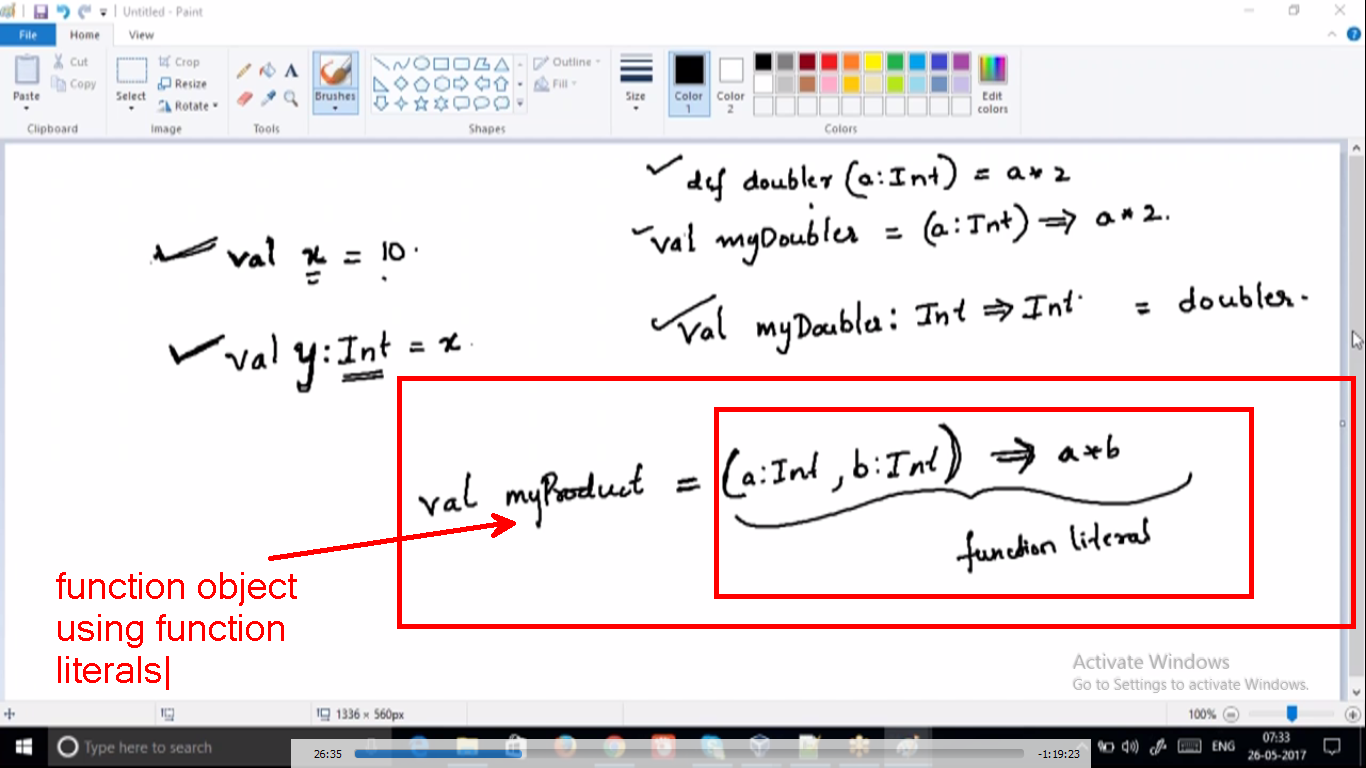 Untitled - Paint
File Home View
Paste
Cut
Copy
Clipboard
Select
Crop
Resize
Rotate
Image
Tools
Brushes
Shapes
Outline
Fill
Size
Color 1
Color 2
Edit colors
Colors
def doubler (a:Int) = a* 2
val myDoubler = (a:Int) ⇒ a * 2.
val x = 10.
val myDoubler: Int ⇒ Int = doubler.
val y:Int = x
val myProduct = (a:Int, b:Int) ⇒ a*b
function literal
function object
using function
literals|
Activate Windows
Go to Settings to activate Windows.
1336 × 560px
100%
Type here to search
26:35
-1:19:23
ENG
07:33
26-05-2017